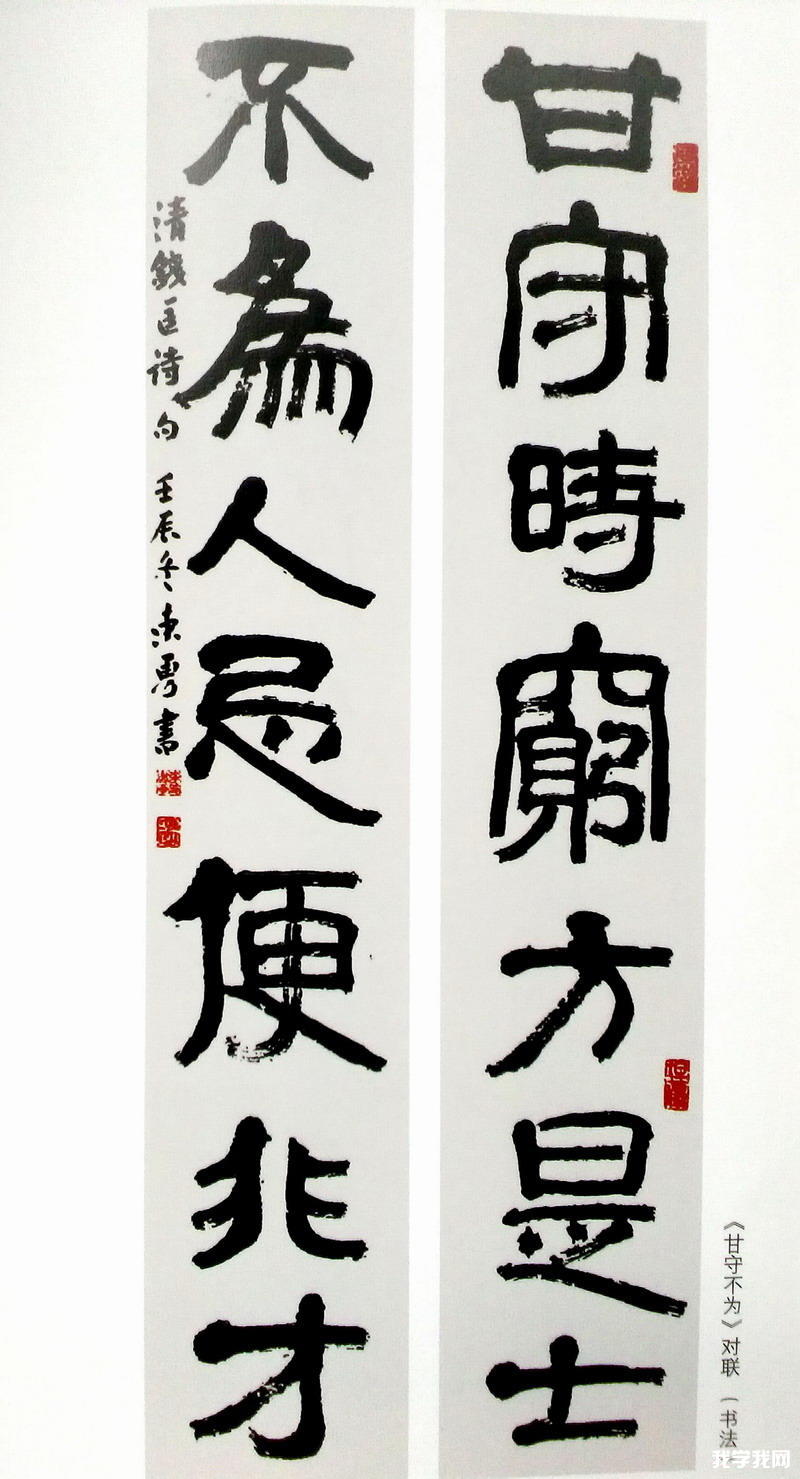 甘守時窮方是士
不為人忌便非才
清錢匡诗句 壬辰冬 陈勇書
《甘守不为》对联 （书法
我学我网